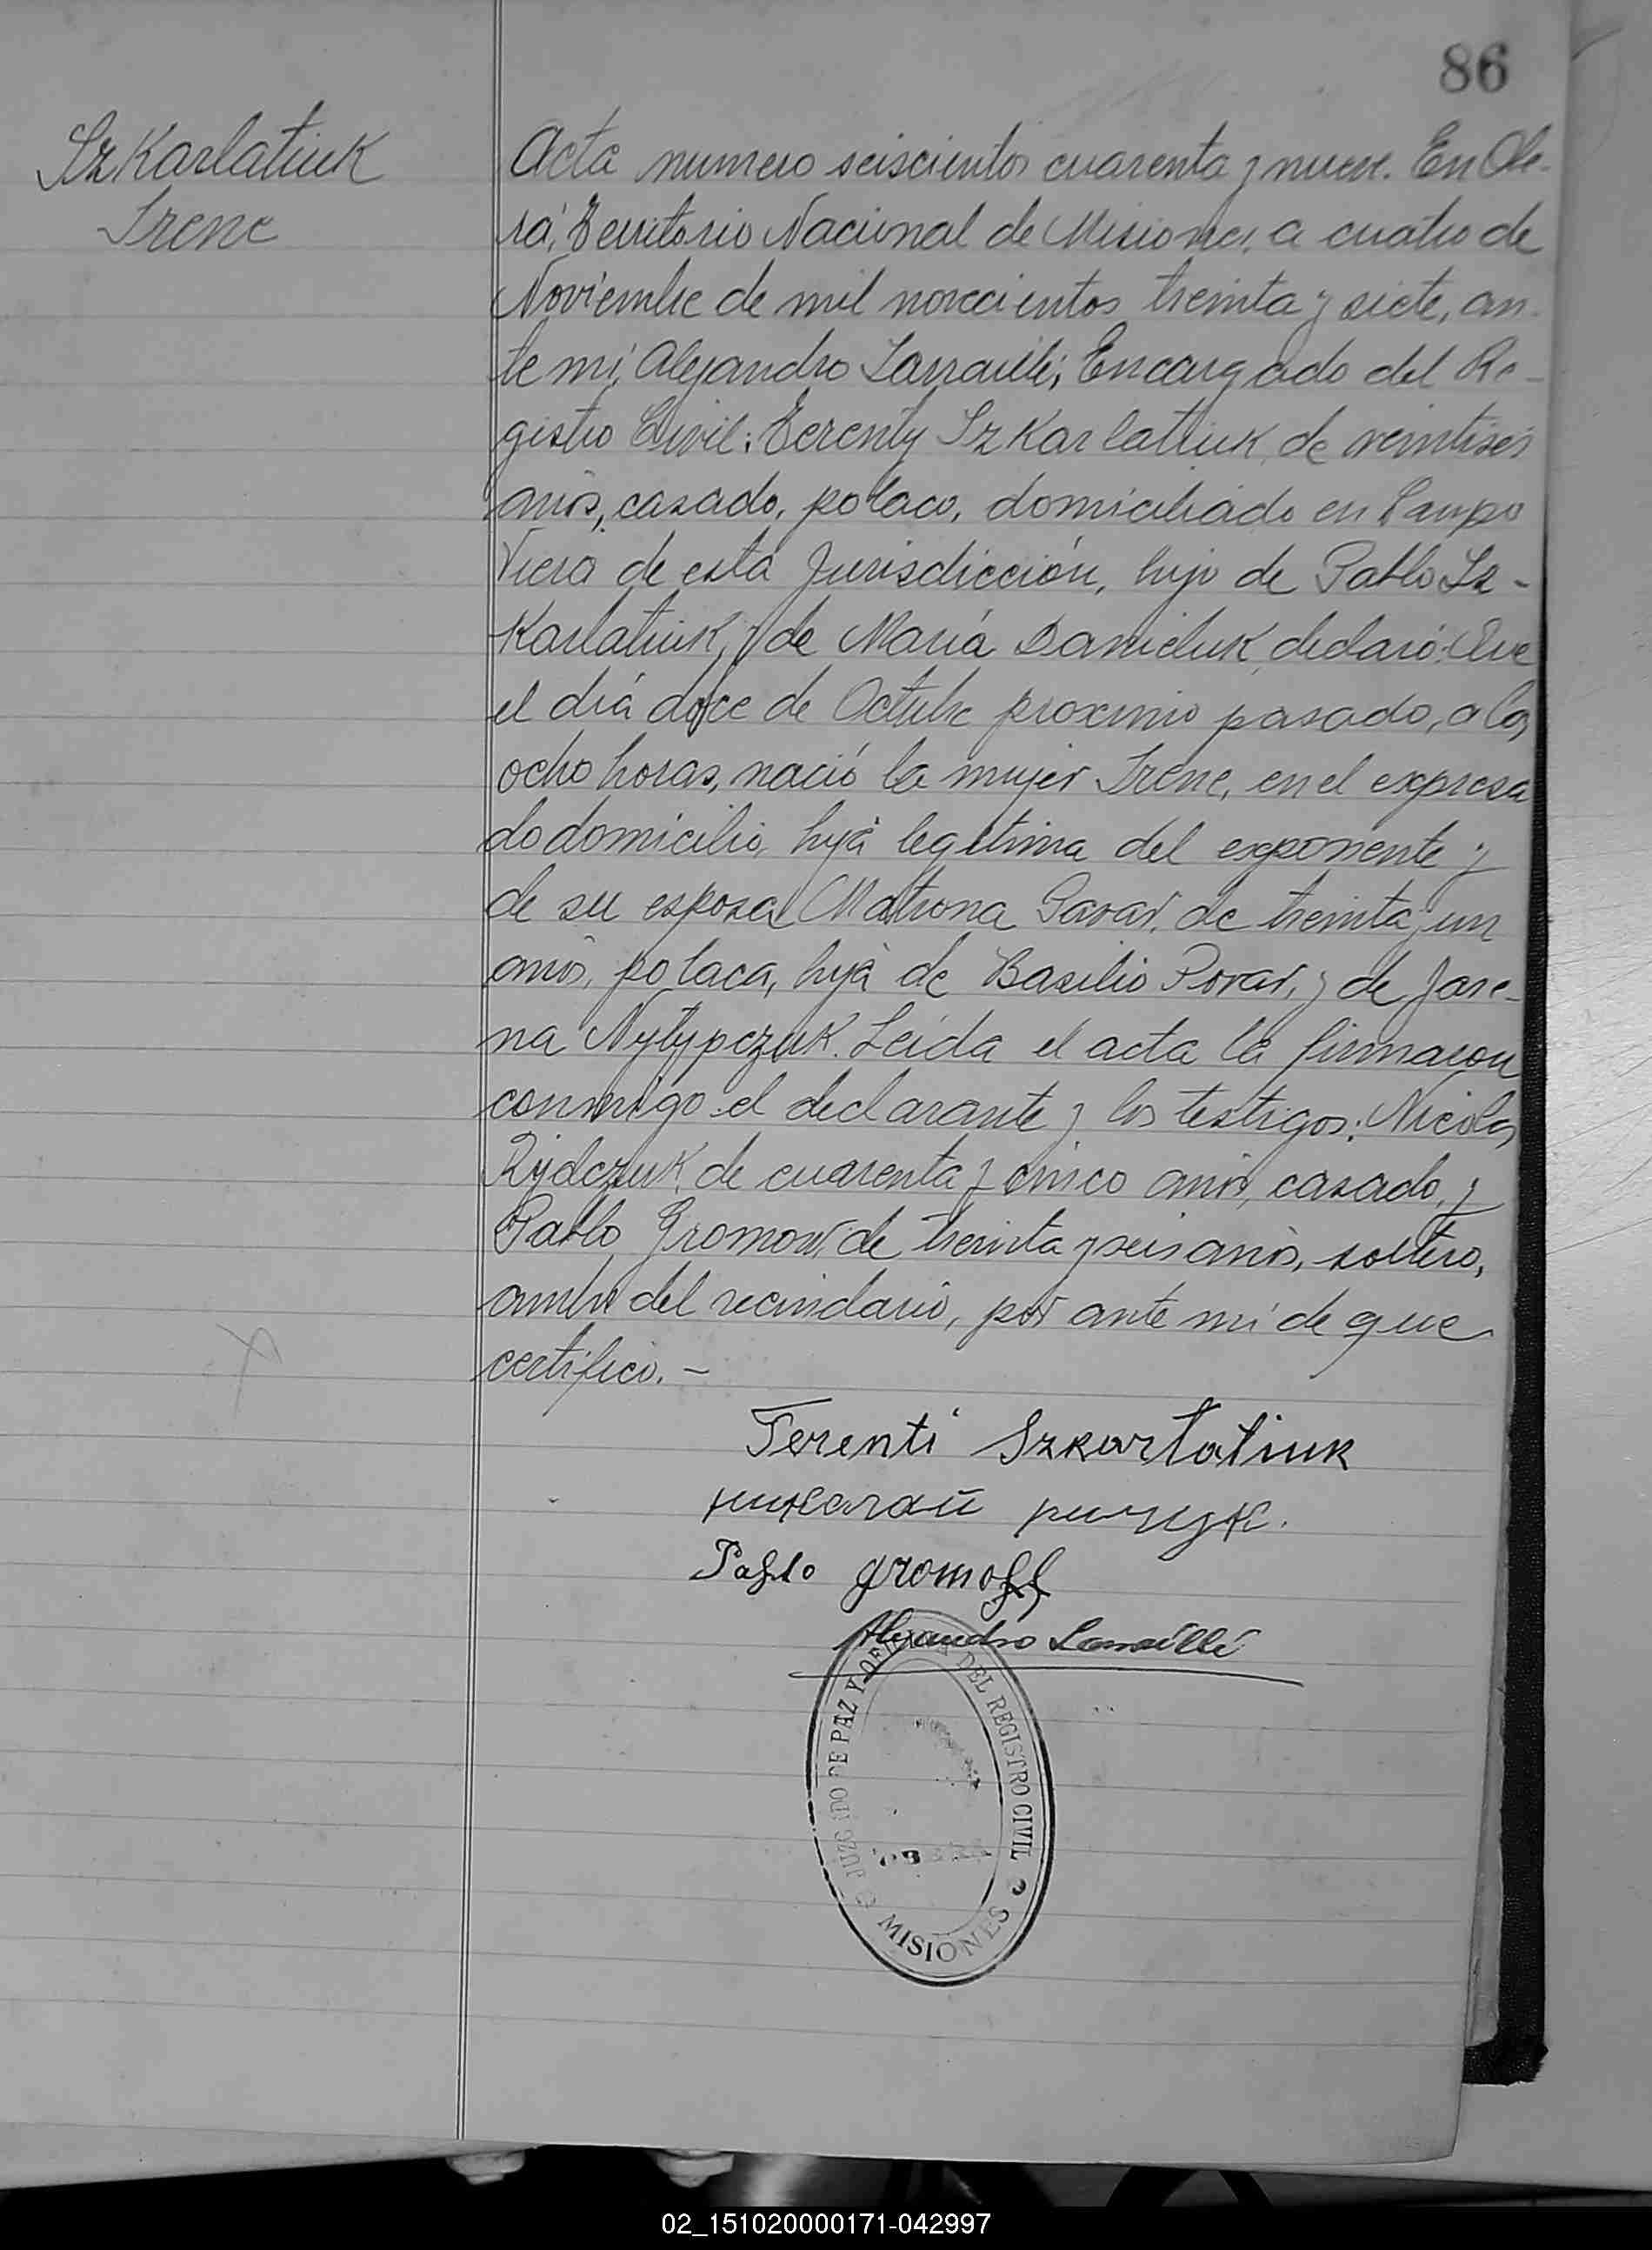 86
Szkarlatiuk
Irene
Acta numero seiscientos cuarenta y nueve. En Obe-
rá, Territorio Nacional de Misiones, a cuatro de
Noviembre de mil novecientos treinta y siete, an-
te mi, Alejandro Larraillé, Encargado del Re-
gistro Civil: Terenty Szkarlatiuk, de veintiseis
años, casado, polaco, domiciliado en Campo
Viera de esta Jurisdicción, hijo de Pablo Sz-
karlatiuk, y de Maria Danieluk, declaró: Que
el día doce de Octubre proximo pasado, a las
ocho horas, nació la mujer Irene, en el expresa
do domicilio, hija legitima del exponente y
de su esposa Matrona Savar, de treinta y un
años, polaca, hija de Basilio Povar, y de Jare-
na Nytypczuk. Leida el acta la firmaron
conmigo el declarante y los testigos: Nicolas
Rydczuk, de cuarenta y cinco años, casado, y
Pablo Gromow, de treinta y seis años, soltero,
ambos del vecindario, por ante mi de que
certifico. -
Terenti Szkarłatiuk
Pablo gromoff
Alejandro Larraillé
JUZGADO DE PAZ Y OFICINA DEL REGISTRO CIVIL
OBERA
MISIONES
02_151020000171-042997